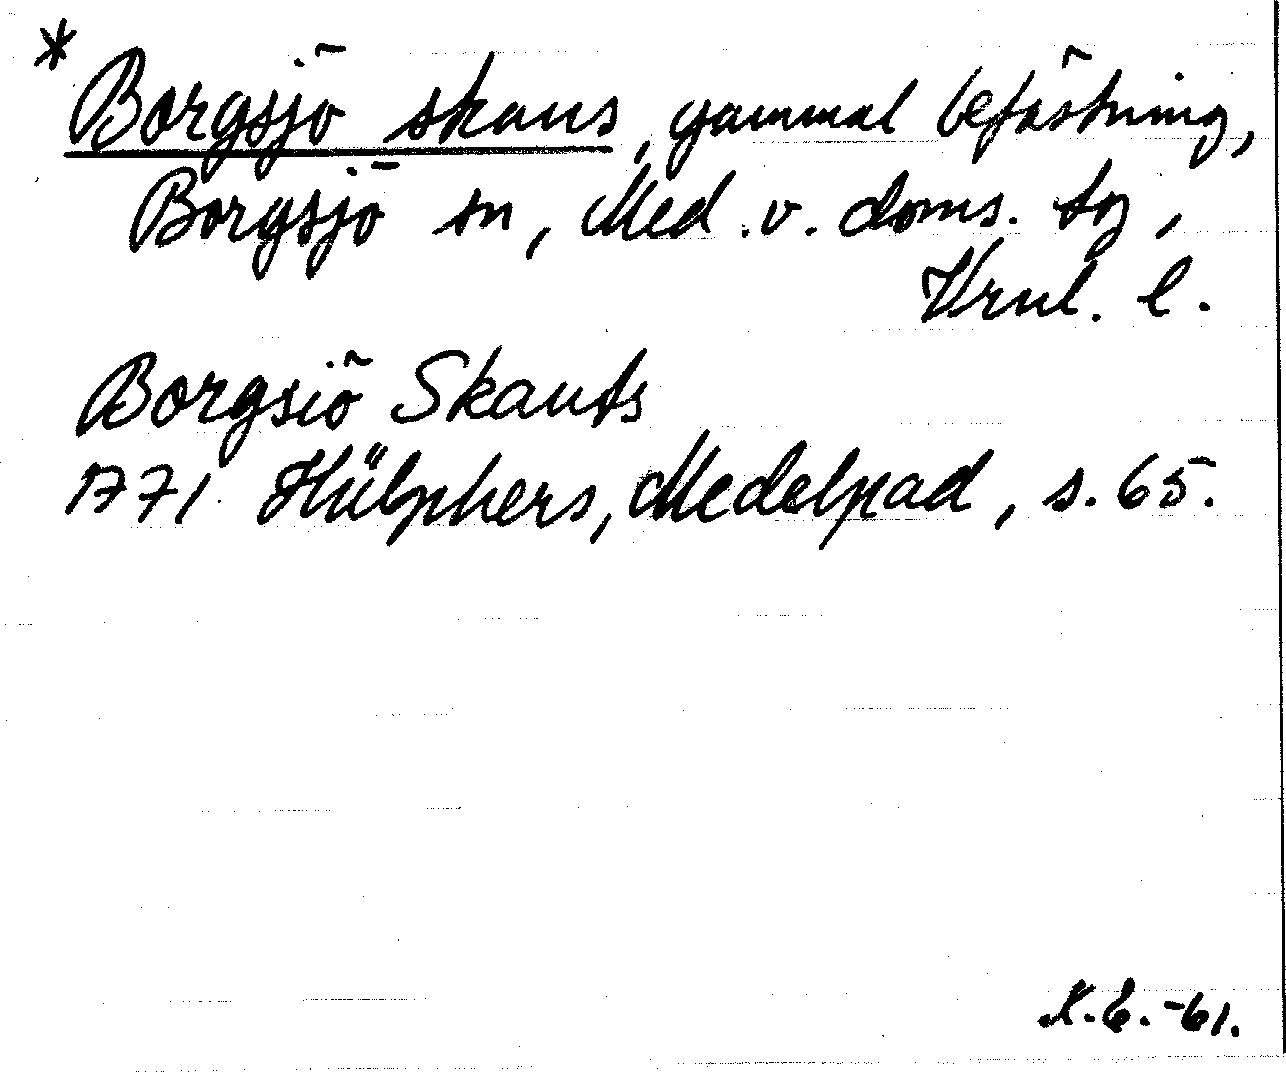 * Borgsjö skans, gammal befästning,
Borgsjö sn, Med. v. doms. tg,
Vrnl. l.
Borgsiö Skants
1771 Hülphers, Medelpad, s. 65.
-61.